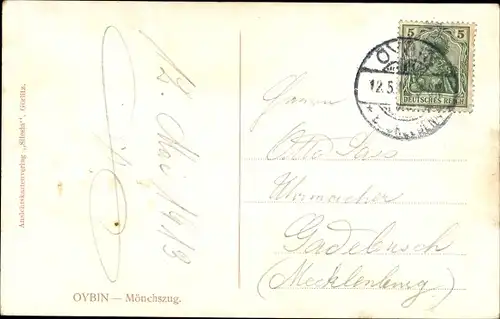 Ansichtskartenverlag „Silesia", Görlitz.
12. Mai 1913
5 5
DEUTSCHES REICH
OYBIN
12.5.
Herrn
Otto Pass
Uhrmacher
Gadebusch
(Mecklenburg)
OYBIN — Mönchszug.